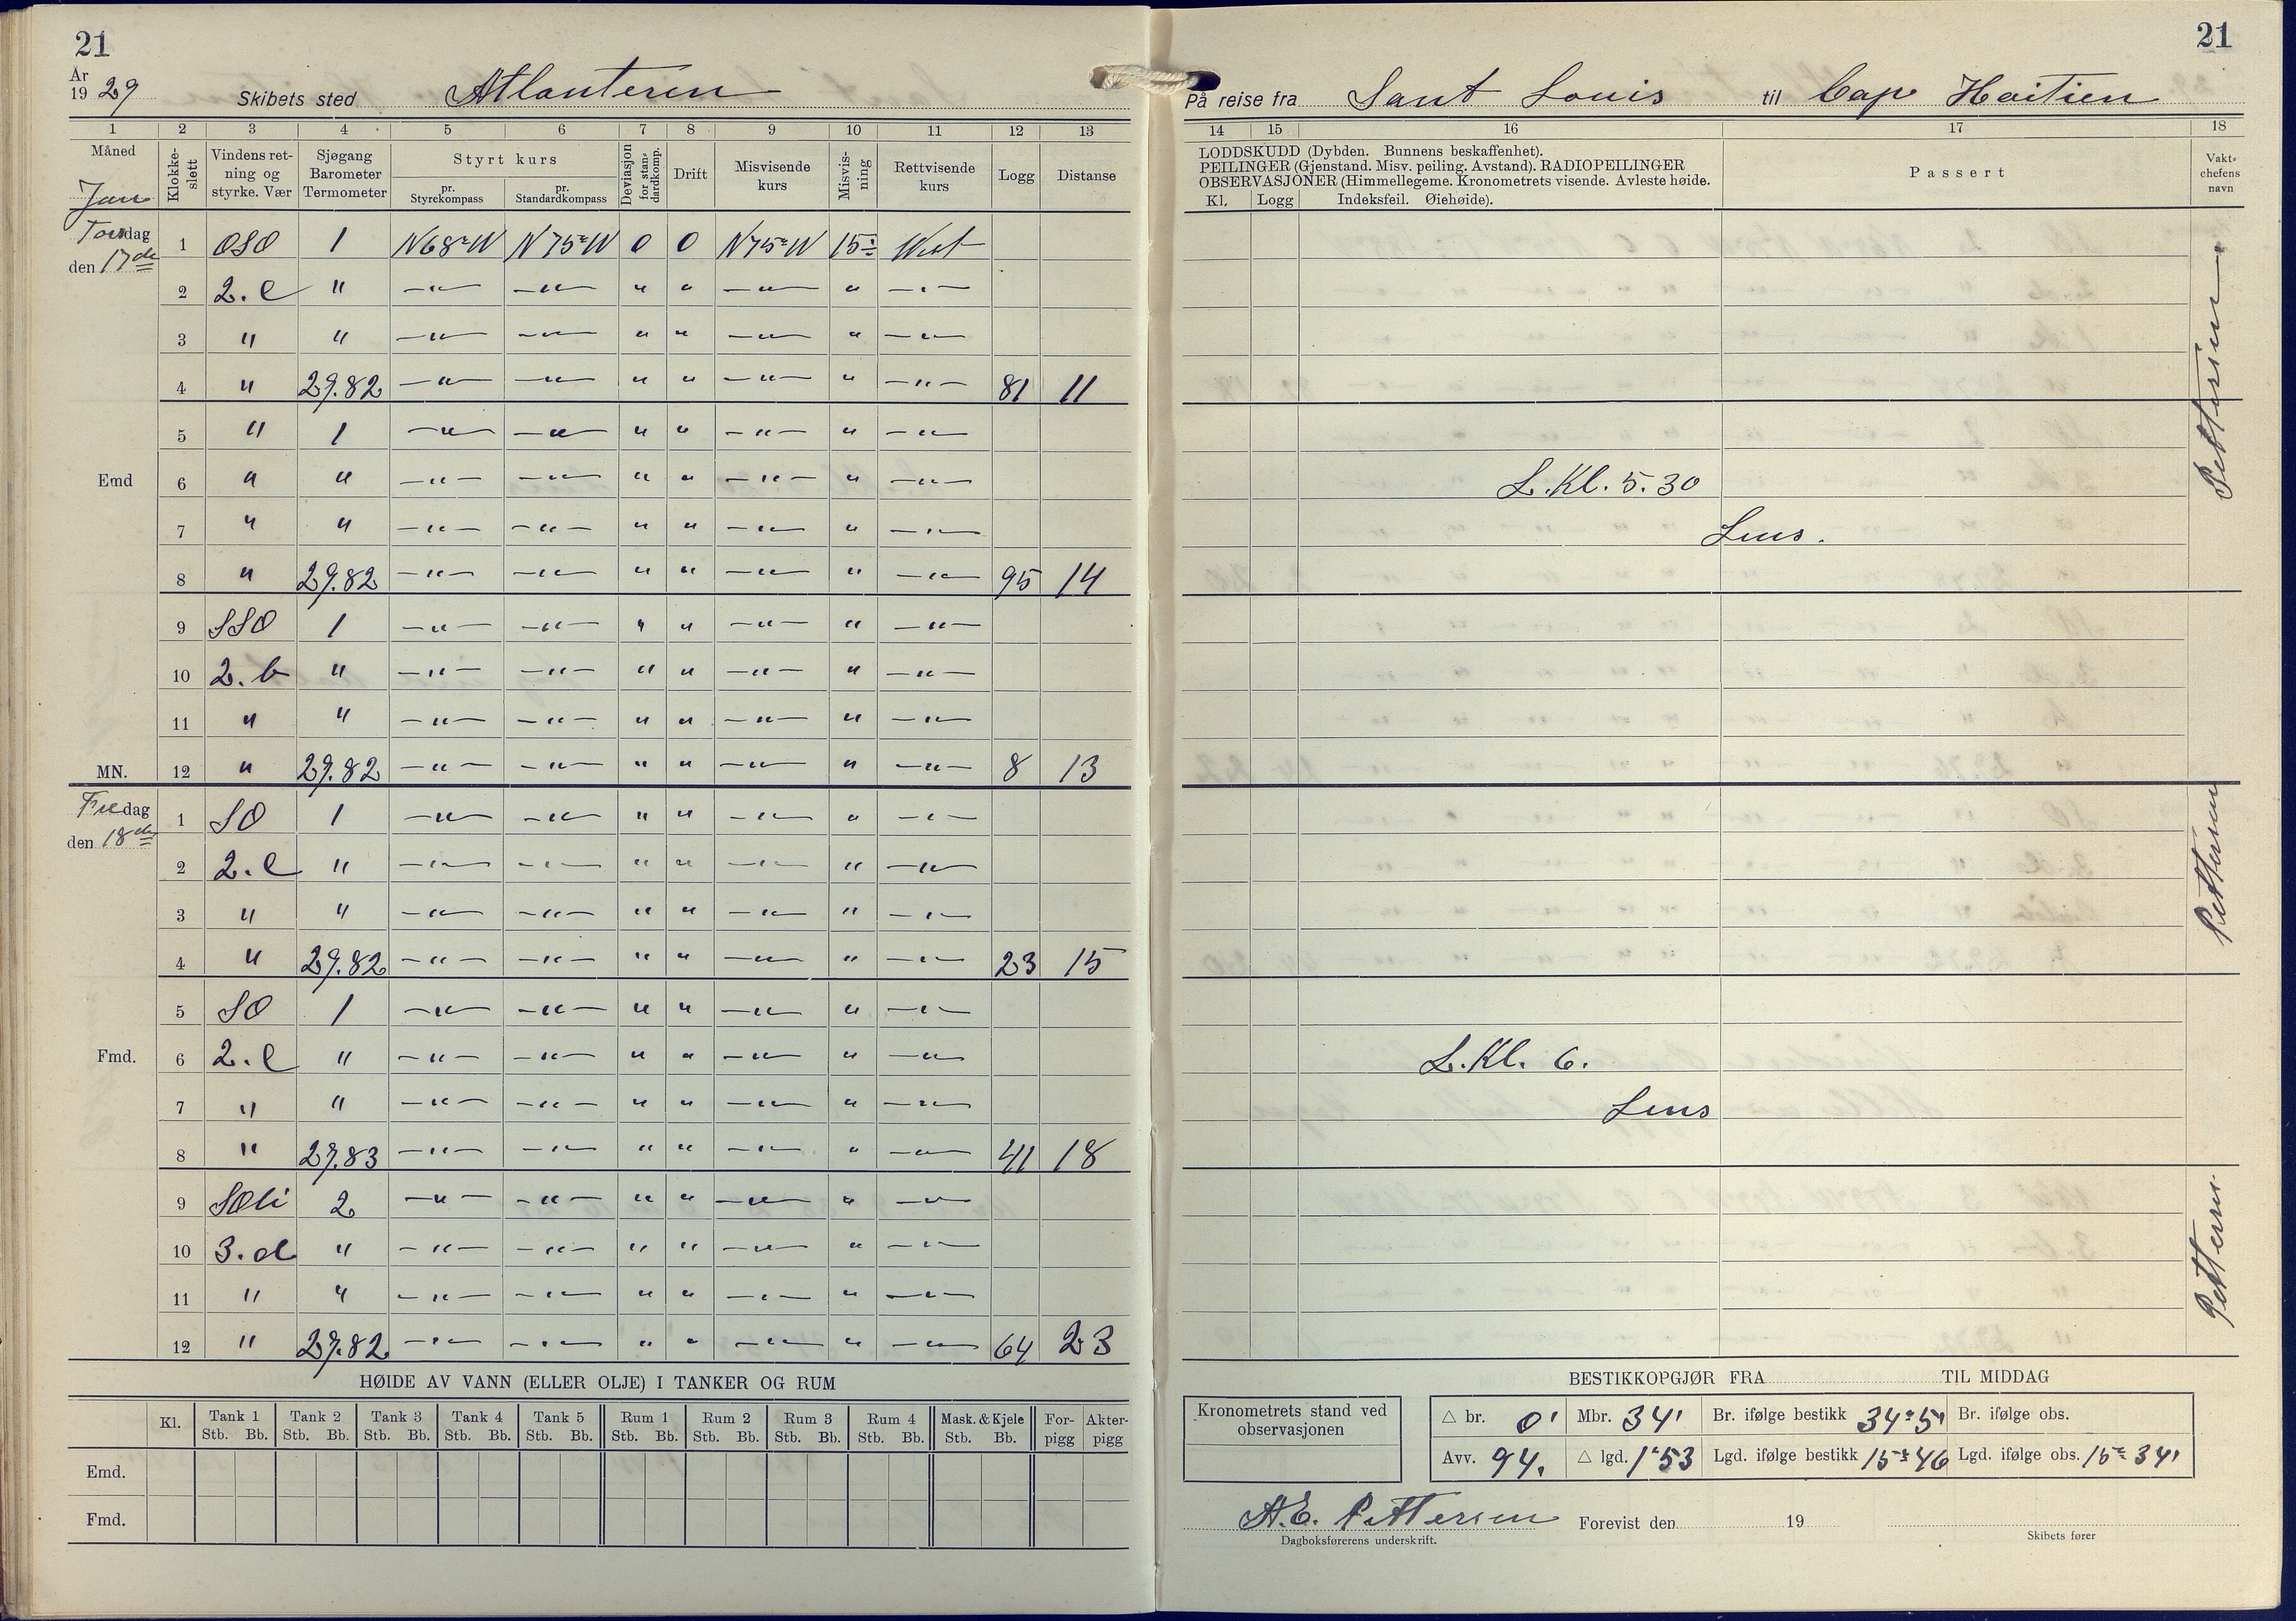 21
År
1929 Skibets sted Atlanteren
1 2 3 4 5 6 7 8 9 10 11 12 13
Måned Jan
Klokke-slett
Vindens ret-ning og styrke. Vær
Sjøgang Barometer Termometer
Styrt kurs
pr. Styrekompass
pr. Standardkompass
Deviasjon for stan-dardkomp.
Drift
Misvisende kurs
Misvis-ning
Rettvisende kurs
Logg
Distanse
Torsdag den 17de
1 OSO 1 N68°W N75°W 0 0 N75°W 15° West
2 2.c " —"— —"— " " —"— " —"—
3 " " —"— —"— " " —"— " —"—
4 " 29.82 —"— —"— " " —"— " —"— 81 11
5 " 1 —"— —"— " " —"— " —"—
Emd 6 " " —"— —"— " " —"— " —"—
7 " " —"— —"— " " —"— " —"—
8 " 29.82 —"— —"— " " —"— " —"— 95 14
9 SSO 1 —"— —"— " " —"— " —"—
10 2.b " —"— —"— " " —"— " —"—
11 " " —"— —"— " " —"— " —"—
MN. 12 " 29.82 —"— —"— " " —"— " —"— 8 13
Fredag den 18de
1 SO 1 —"— —"— " " —"— " —"—
2 2.c " —"— —"— " " —"— " —"—
3 " " —"— —"— " " —"— " —"—
4 " 29.82 —"— —"— " " —"— " —"— 23 15
5 SO 1 —"— —"— " " —"— " —"—
Fmd. 6 2.c " —"— —"— " " —"— " —"—
7 " " —"— —"— " " —"— " —"—
8 " 29.83 —"— —"— " " —"— " —"— 41 18
9 SOli 2 —"— —"— " " —"— " —"—
10 3.d " —"— —"— " " —"— " —"—
11 " " —"— —"— " " —"— " —"—
12 " 29.82 —"— —"— " " —"— " —"— 64 23
HØIDE AV VANN (ELLER OLJE) I TANKER OG RUM
Kl. Tank 1 Tank 2 Tank 3 Tank 4 Tank 5 Rum 1 Rum 2 Rum 3 Rum 4 Mask. & Kjele For-pigg Akter-pigg
Stb. Bb. Stb. Bb. Stb. Bb. Stb. Bb. Stb. Bb. Stb. Bb. Stb. Bb. Stb. Bb. Stb. Bb. Stb. Bb.
Emd.
Fmd.
21
På reise fra Sant Louis til Cap Haitien
14 15 16 17 18
LODDSKUDD (Dybden. Bunnens beskaffenhet).
PEILINGER (Gjenstand. Misv. peiling. Avstand). RADIOPEILINGER
OBSERVASJONER (Himmellegeme. Kronometrets visende. Avleste høide.
Kl. Logg Indeksfeil. Øiehøide).
Passert
Vakt-chefens navn
Pettersen.
L. Kl. 5.30
Lens.
Pettersen
L. Kl. 6.
Lens
Pettersen
BESTIKKOPGJØR FRA TIL MIDDAG
Kronometrets stand ved observasjonen
△ br. 0' Mbr. 34' Br. ifølge bestikk 34°5' Br. ifølge obs.
Avv. 94. △ lgd. 1°53 Lgd. ifølge bestikk 15°46 Lgd. ifølge obs. 15°34'
A.E. Pettersen Forevist den 19
Dagboksførerens underskrift. Skibets fører